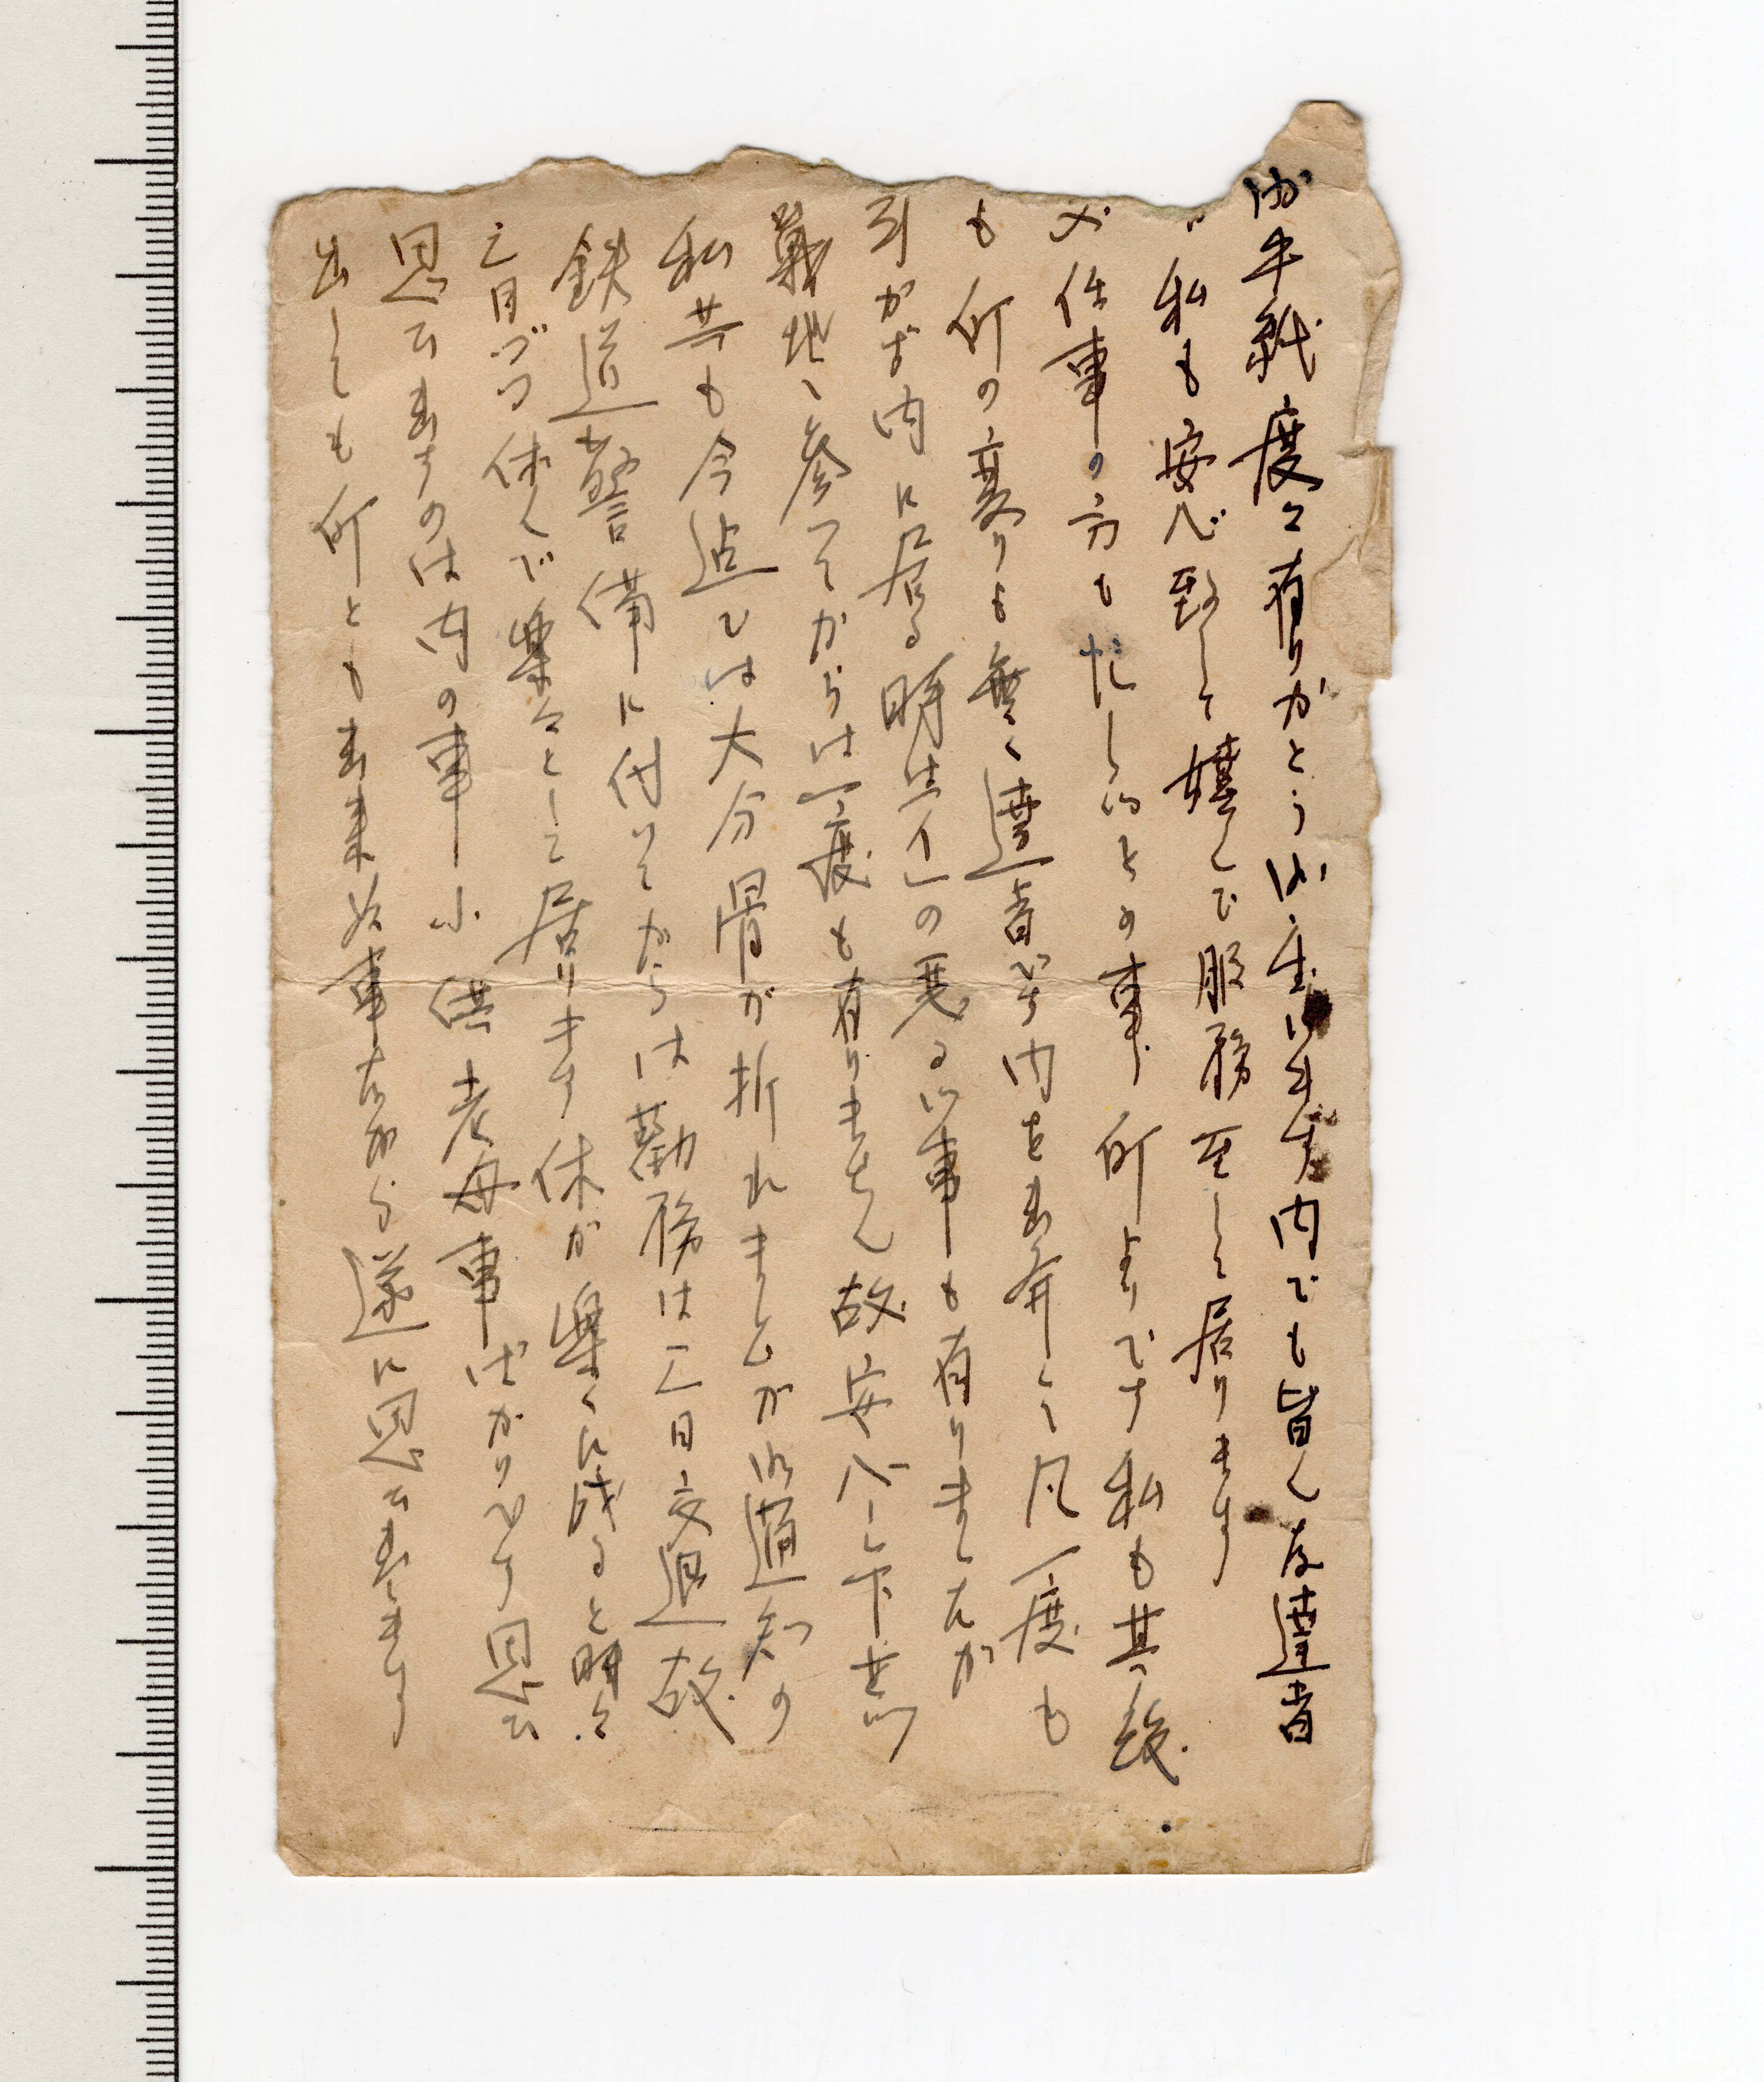 御手紙度々有りがとう御座います内でも皆んな達者
私も安心致して喜んで服務至して居ります
仕事の方も忙しいとの事何よりです私も其の後
も何の変りも無く達者で内を出発して凡一度も
引かず内に居る時は一の悪るい事も有りましたが
戦地へ参ってからは一度も有りません故安心して下さい
私共も今迠では大分骨が折れましたが御通知の
鉄道警備に付いてからは勤務は一日交退故
一日づつ休んで楽々として居ります休が楽くに成ると時々
思い出すのは内の事小供老母事ばかりです思い
出しても何とも出来ぬ事ながら遂に思い出します